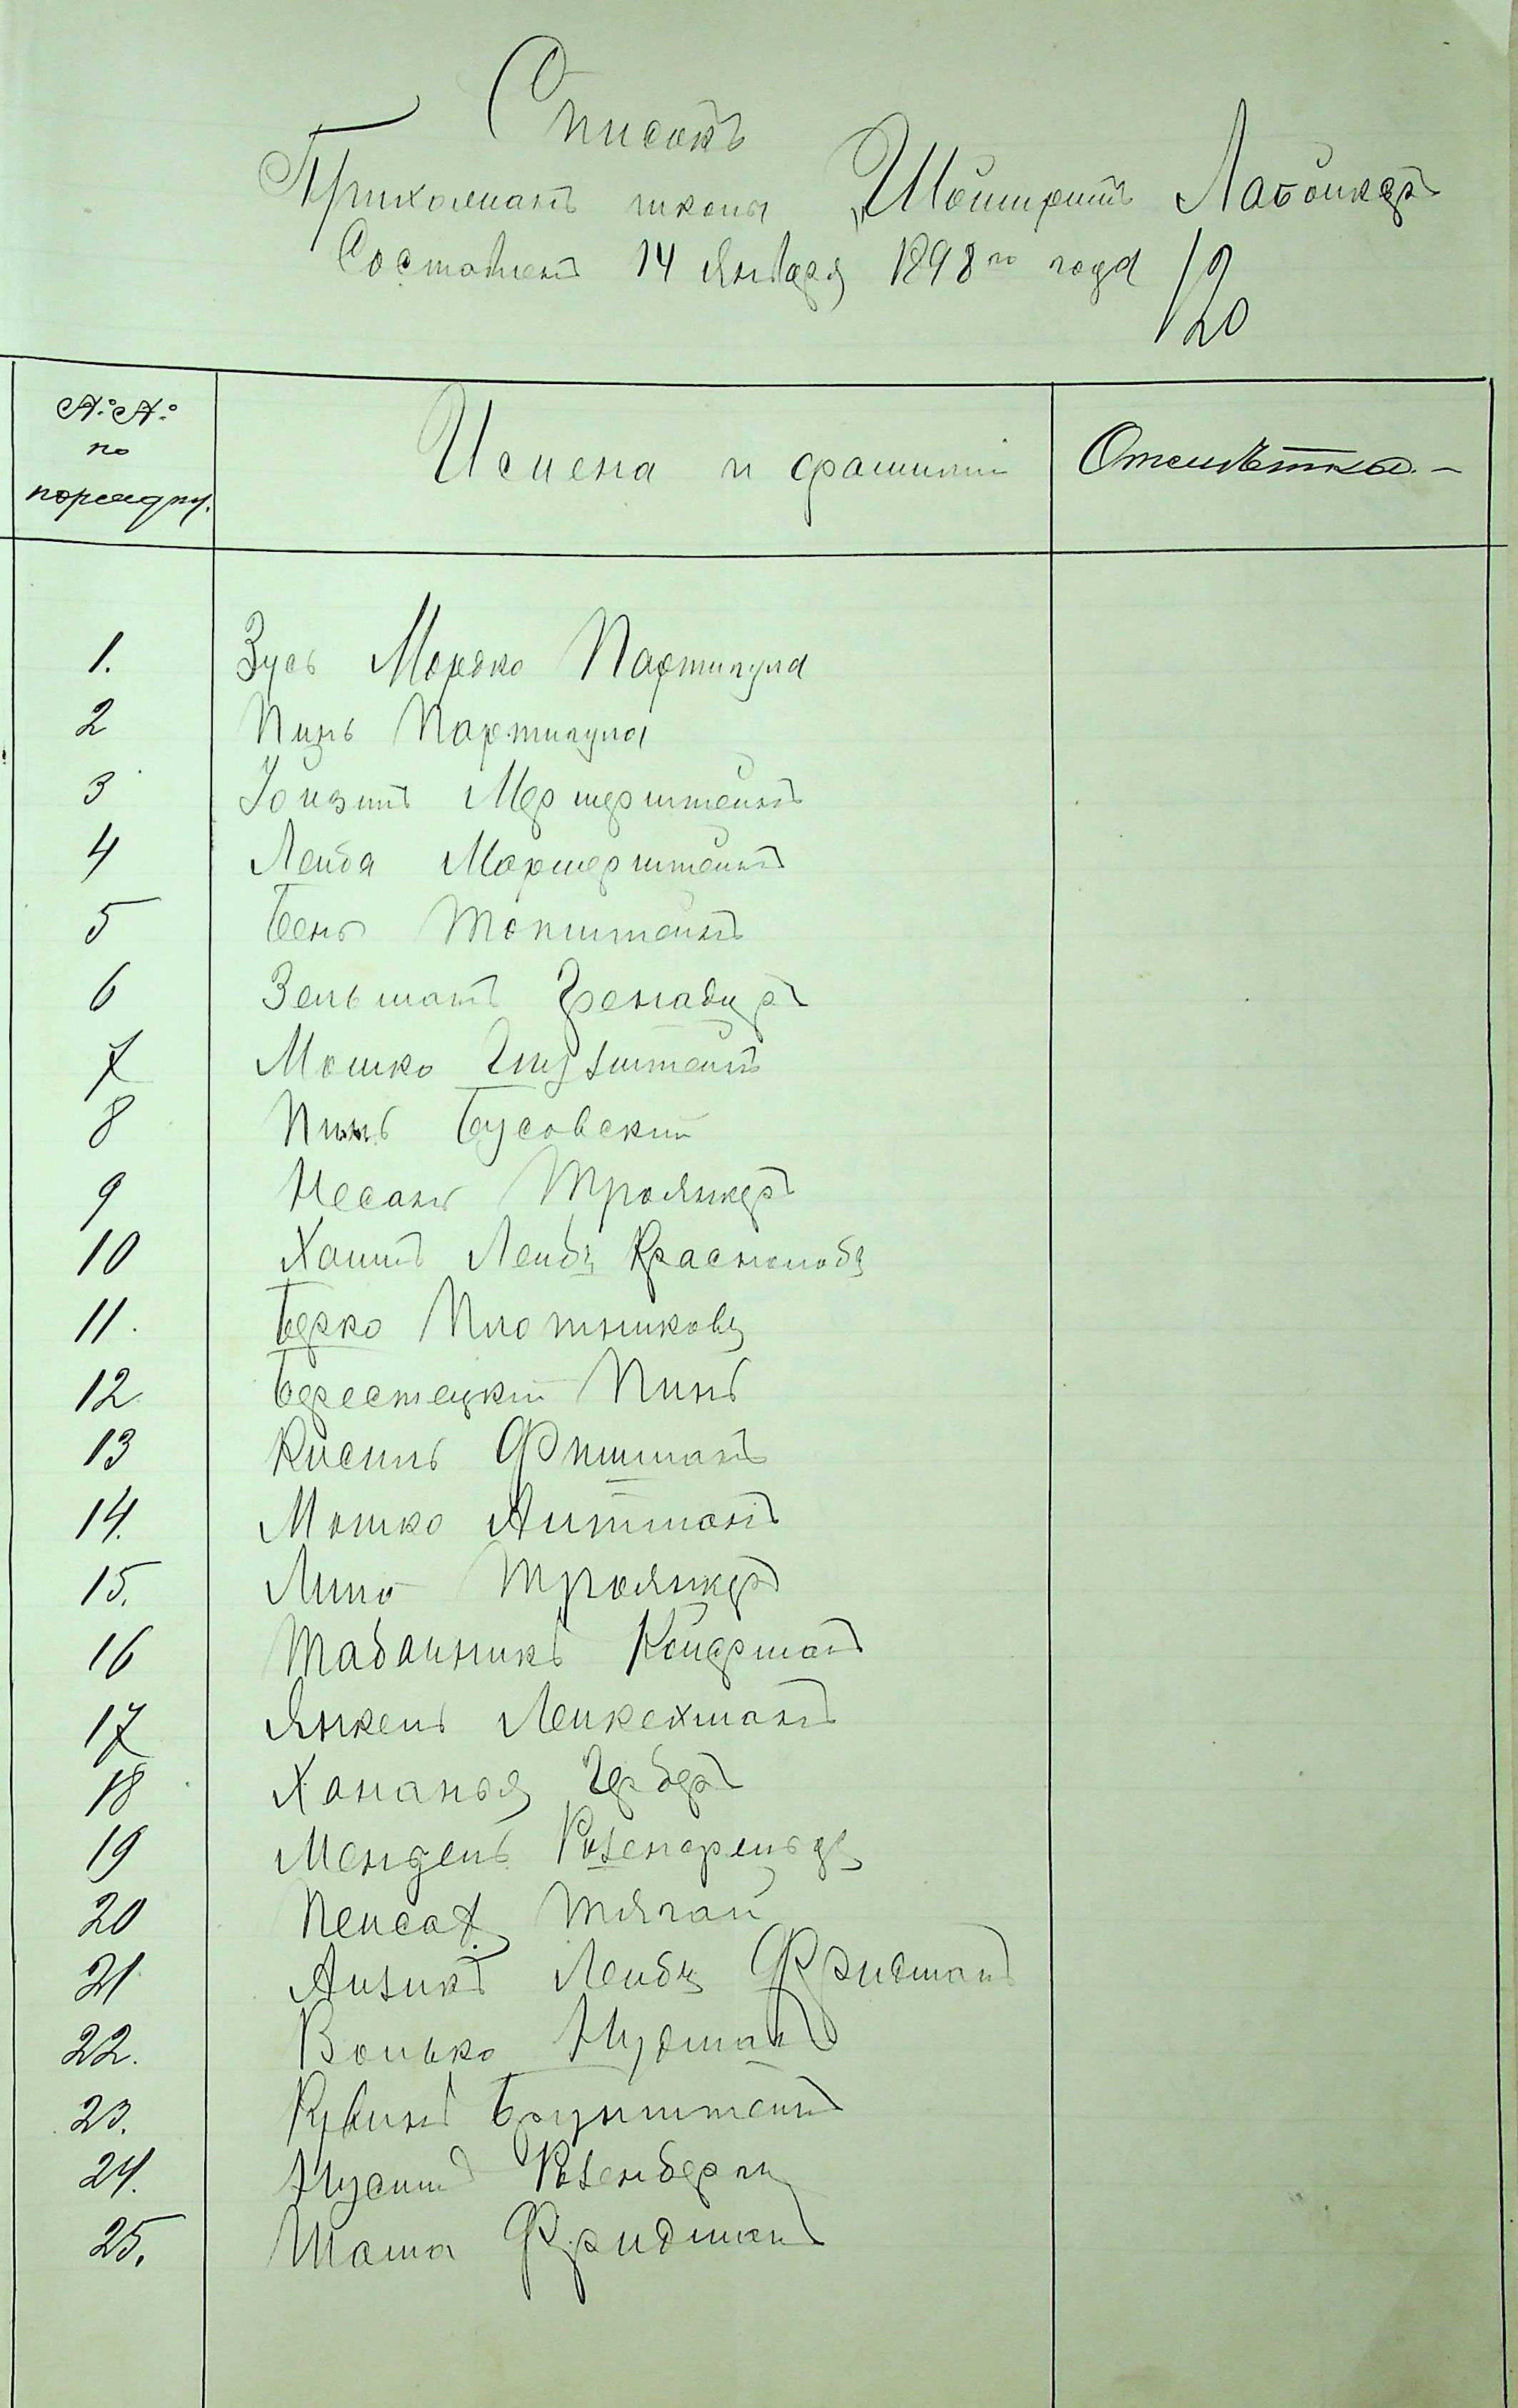 Списокъ
Прихожанъ школы „Шоймримъ Лабойкеръ
Составленъ 14 Января 1898 го года
120
№№ по порядку. Имена и фамилии Отмѣтка.
1. Зусь Мордко Партикула
2 Пинь Партикула
3 Мерперштейнъ
4 Лейба Марперштейнъ
5 Бень Топштейнъ
6 Зельманъ Гренадеръ
7 Мошко Глузштейнъ
8 Пинь Бусовский
9 Несань Троянкеръ
10 Хаимъ Лейбъ Краснопобъ
11. Берко Плотниковъ
12 Берестецкий Пинь
13 Кисиль Фишманъ
14. Мошко Литманъ
15. Липа Троянкеръ
16 Табачникъ Койфманъ
17 Янкель Лейкехманъ
18 Хананья Герберъ
19 Мендель Розенфельдъ
20 Пейсахъ Тягай
21 Аизикъ Лейбъ Фридманъ
22. Волько Нудманъ
23. Рувинъ Брунштейнъ
24. Нусимъ Розенбергъ
25. Шама Фридманъ